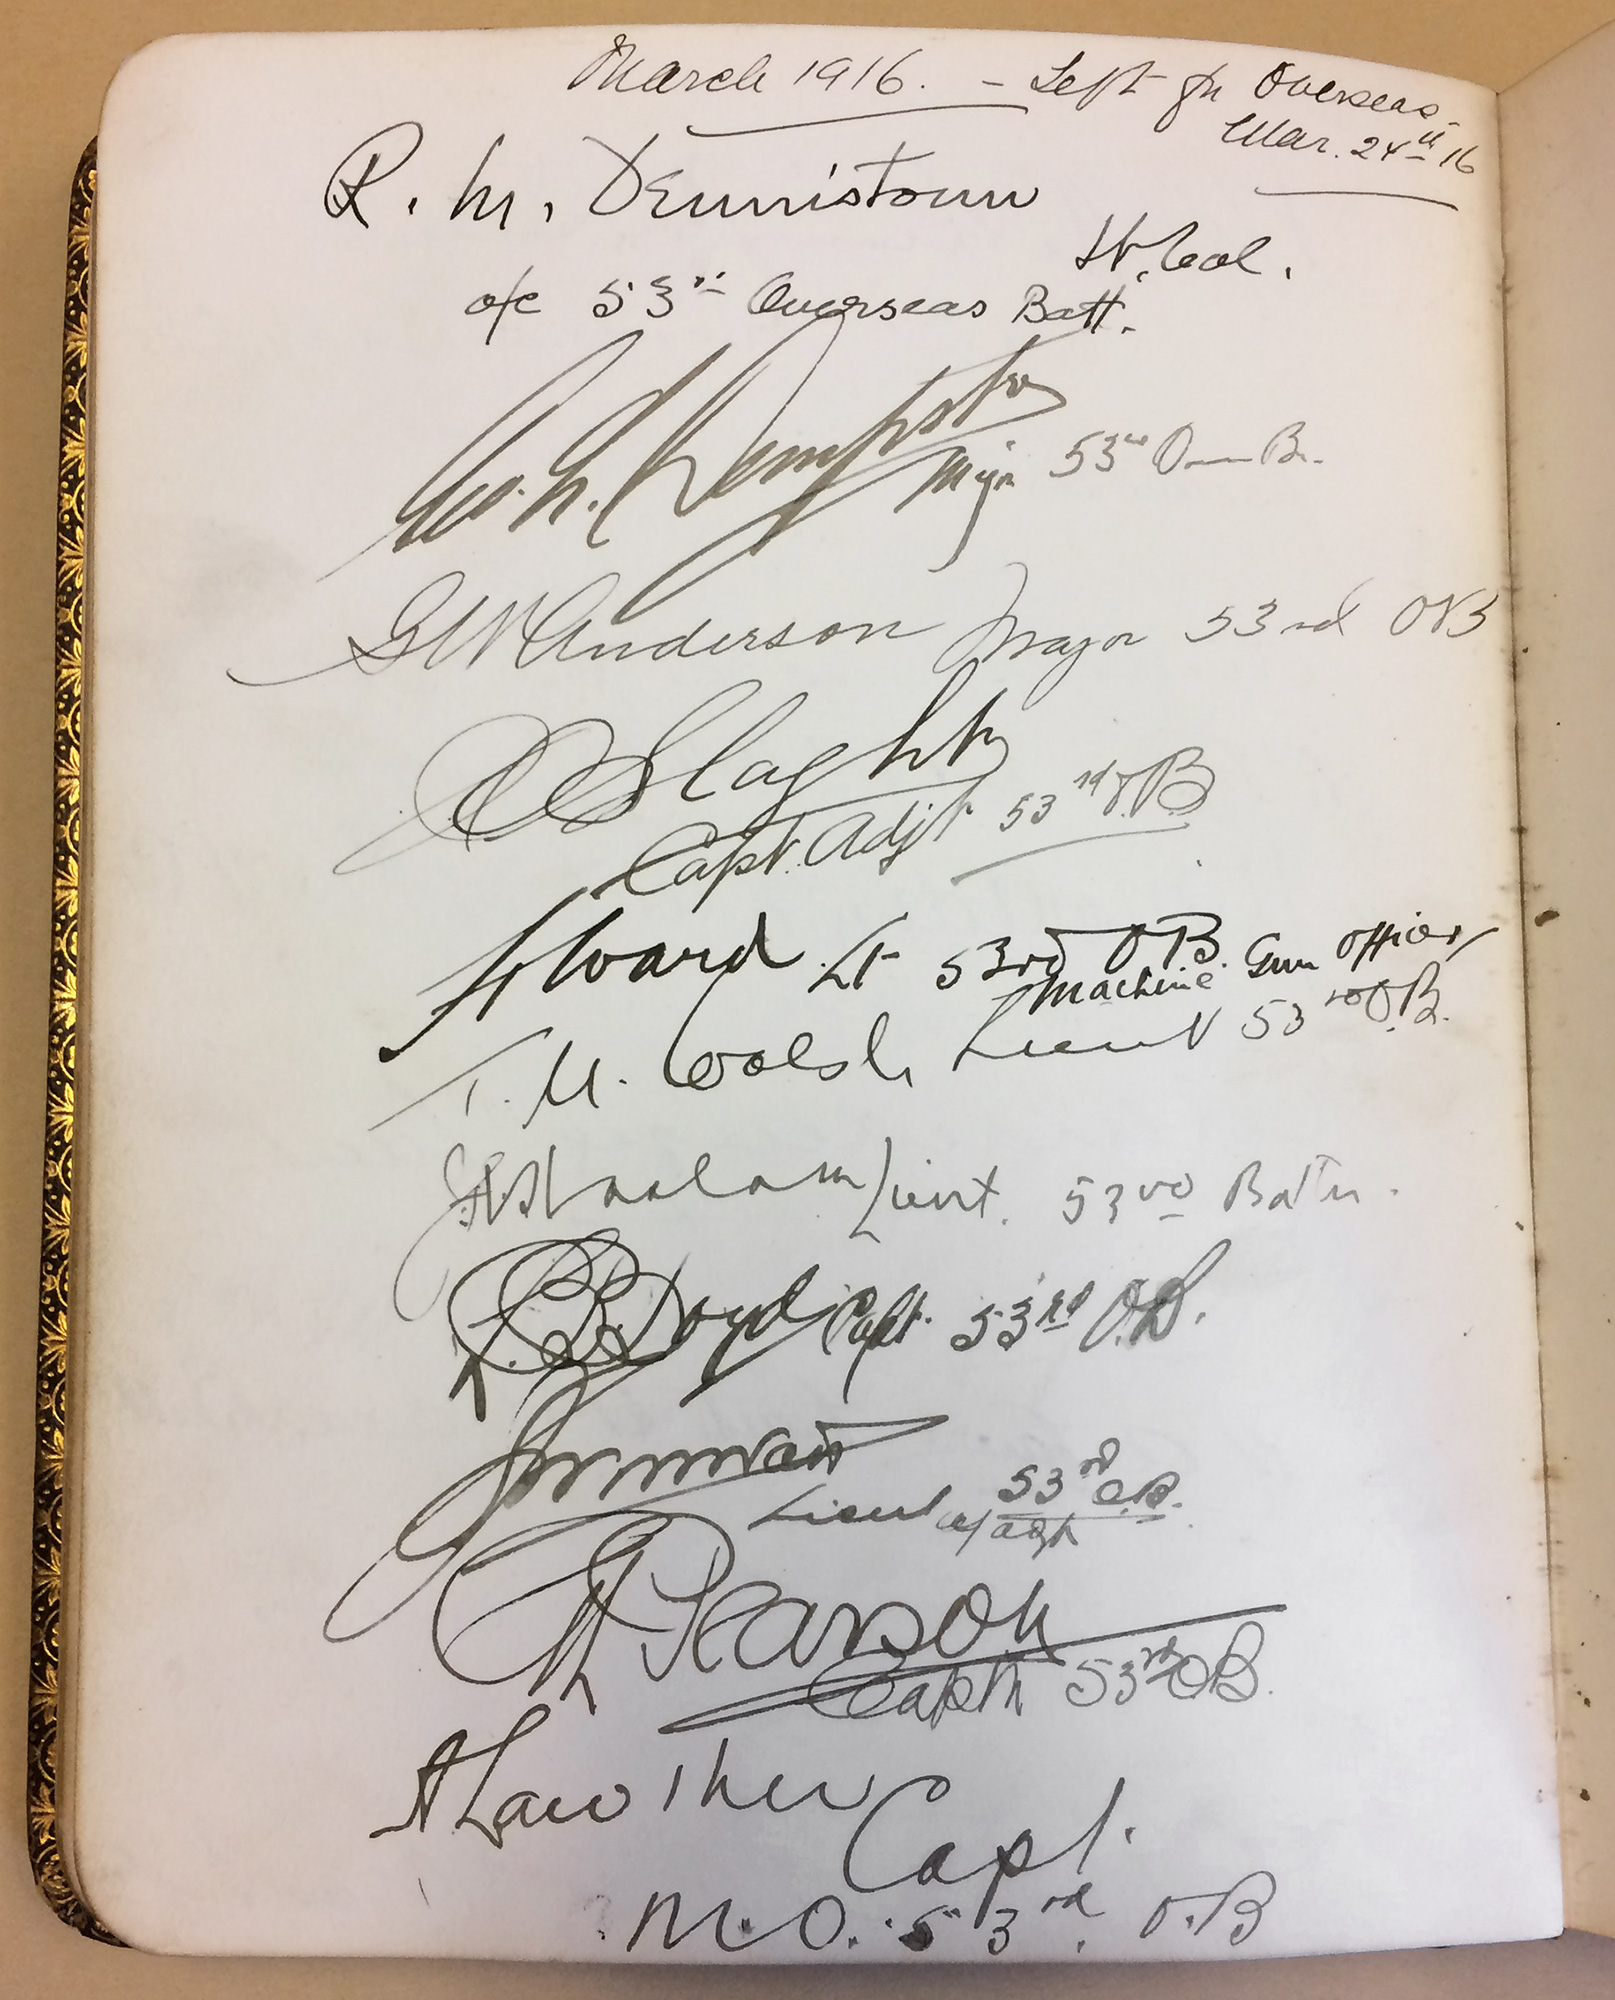 March 1916. - Left for Overseas -
Mar. 24th 16
R. M. Dennistoun
Lt. Col.
o/c 53rd Overseas Batt.
Dempster
Major 53rd
G W Anderson Major 53rd OVB
Slaght
Capt. Adjt 53rd O.B.
Ward Lt 53rd OB.
Machine Gun Officer
T. M. Walsh Lieut 53rd O.B.
Lieut. 53rd Battn.
Boyd Capt. 53rd O.B.
53rd O.B.
Lieut a/adjt
Pearson
Capt 53rd OB.
A Lawther
Capt.
M.O. 53rd. O.B